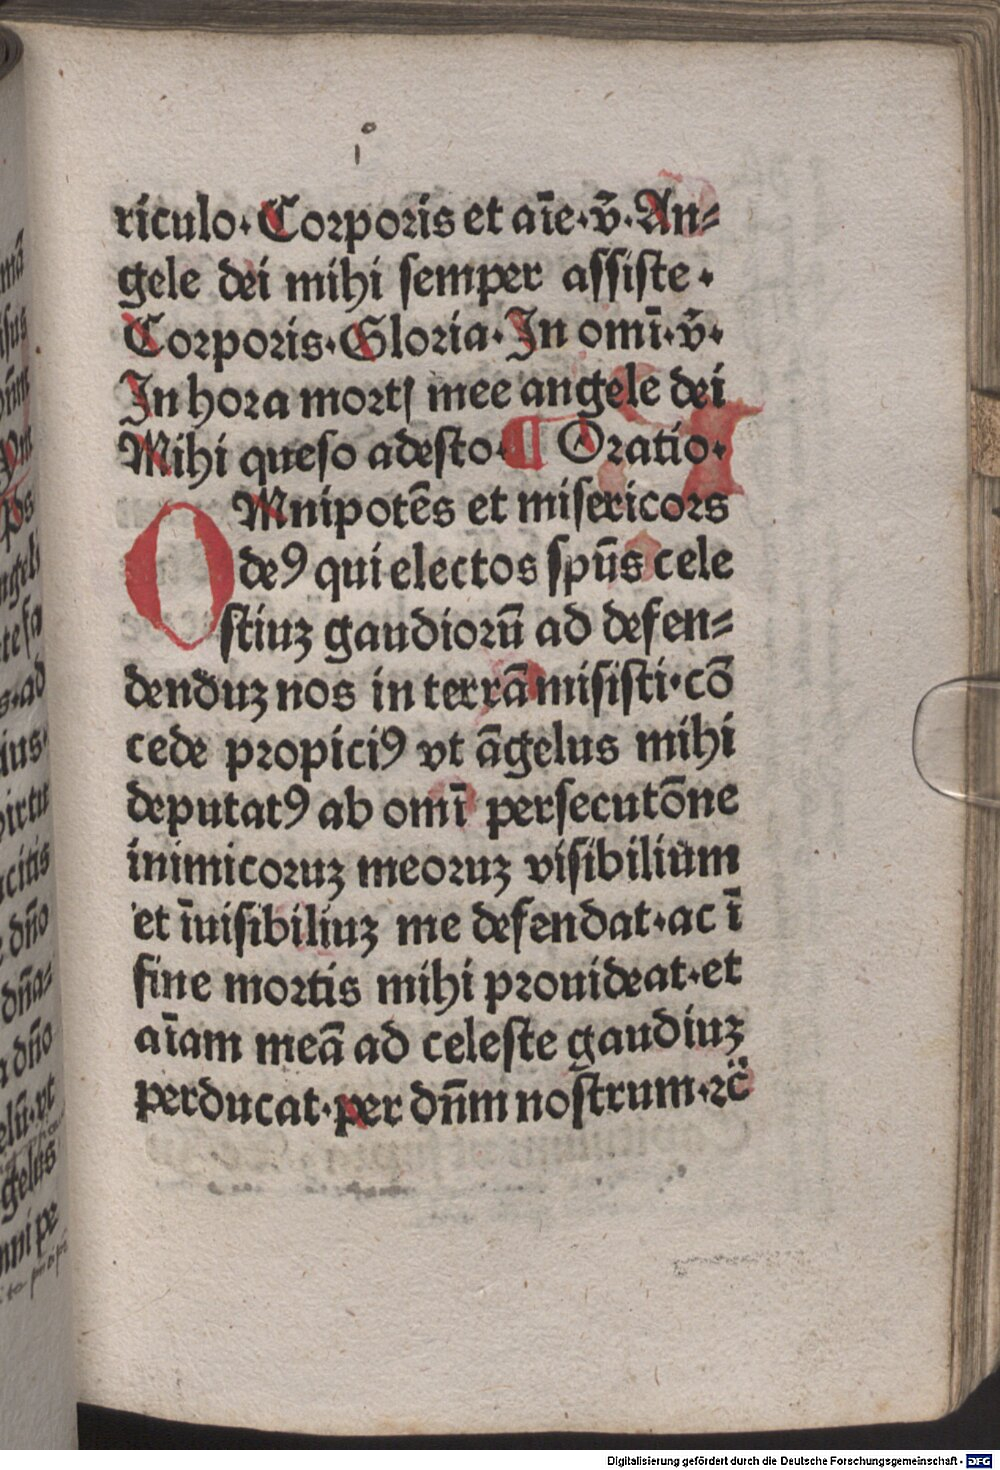 riculo. Corporis et aīe. v̄. An⸗
gele dei mihi semper assiste.
Corporis. Gloria. In omī. v̄.
In hora mortꝭ mee angele dei
Mihi queso adesto. ¶ Oratio.
OMnipotēs et misericors
deꝰ qui electos spūs cele
stiuz gaudiorū ad defen⸗
denduz nos in terrā misisti. cō
cede propiciꝰ vt āgelus mihi
deputatꝰ ab omī persecutōne
inimicoruz meoruz visibilium
et īuisibiliuz me defendat. ac ī
fine mortis mihi prouideat. et
aīam meā ad celeste gaudiuz
perducat. per dn̄m nostrum. ⁊c̄
Digitalisierung gefördert durch die Deutsche Forschungsgemeinschaft - DFG